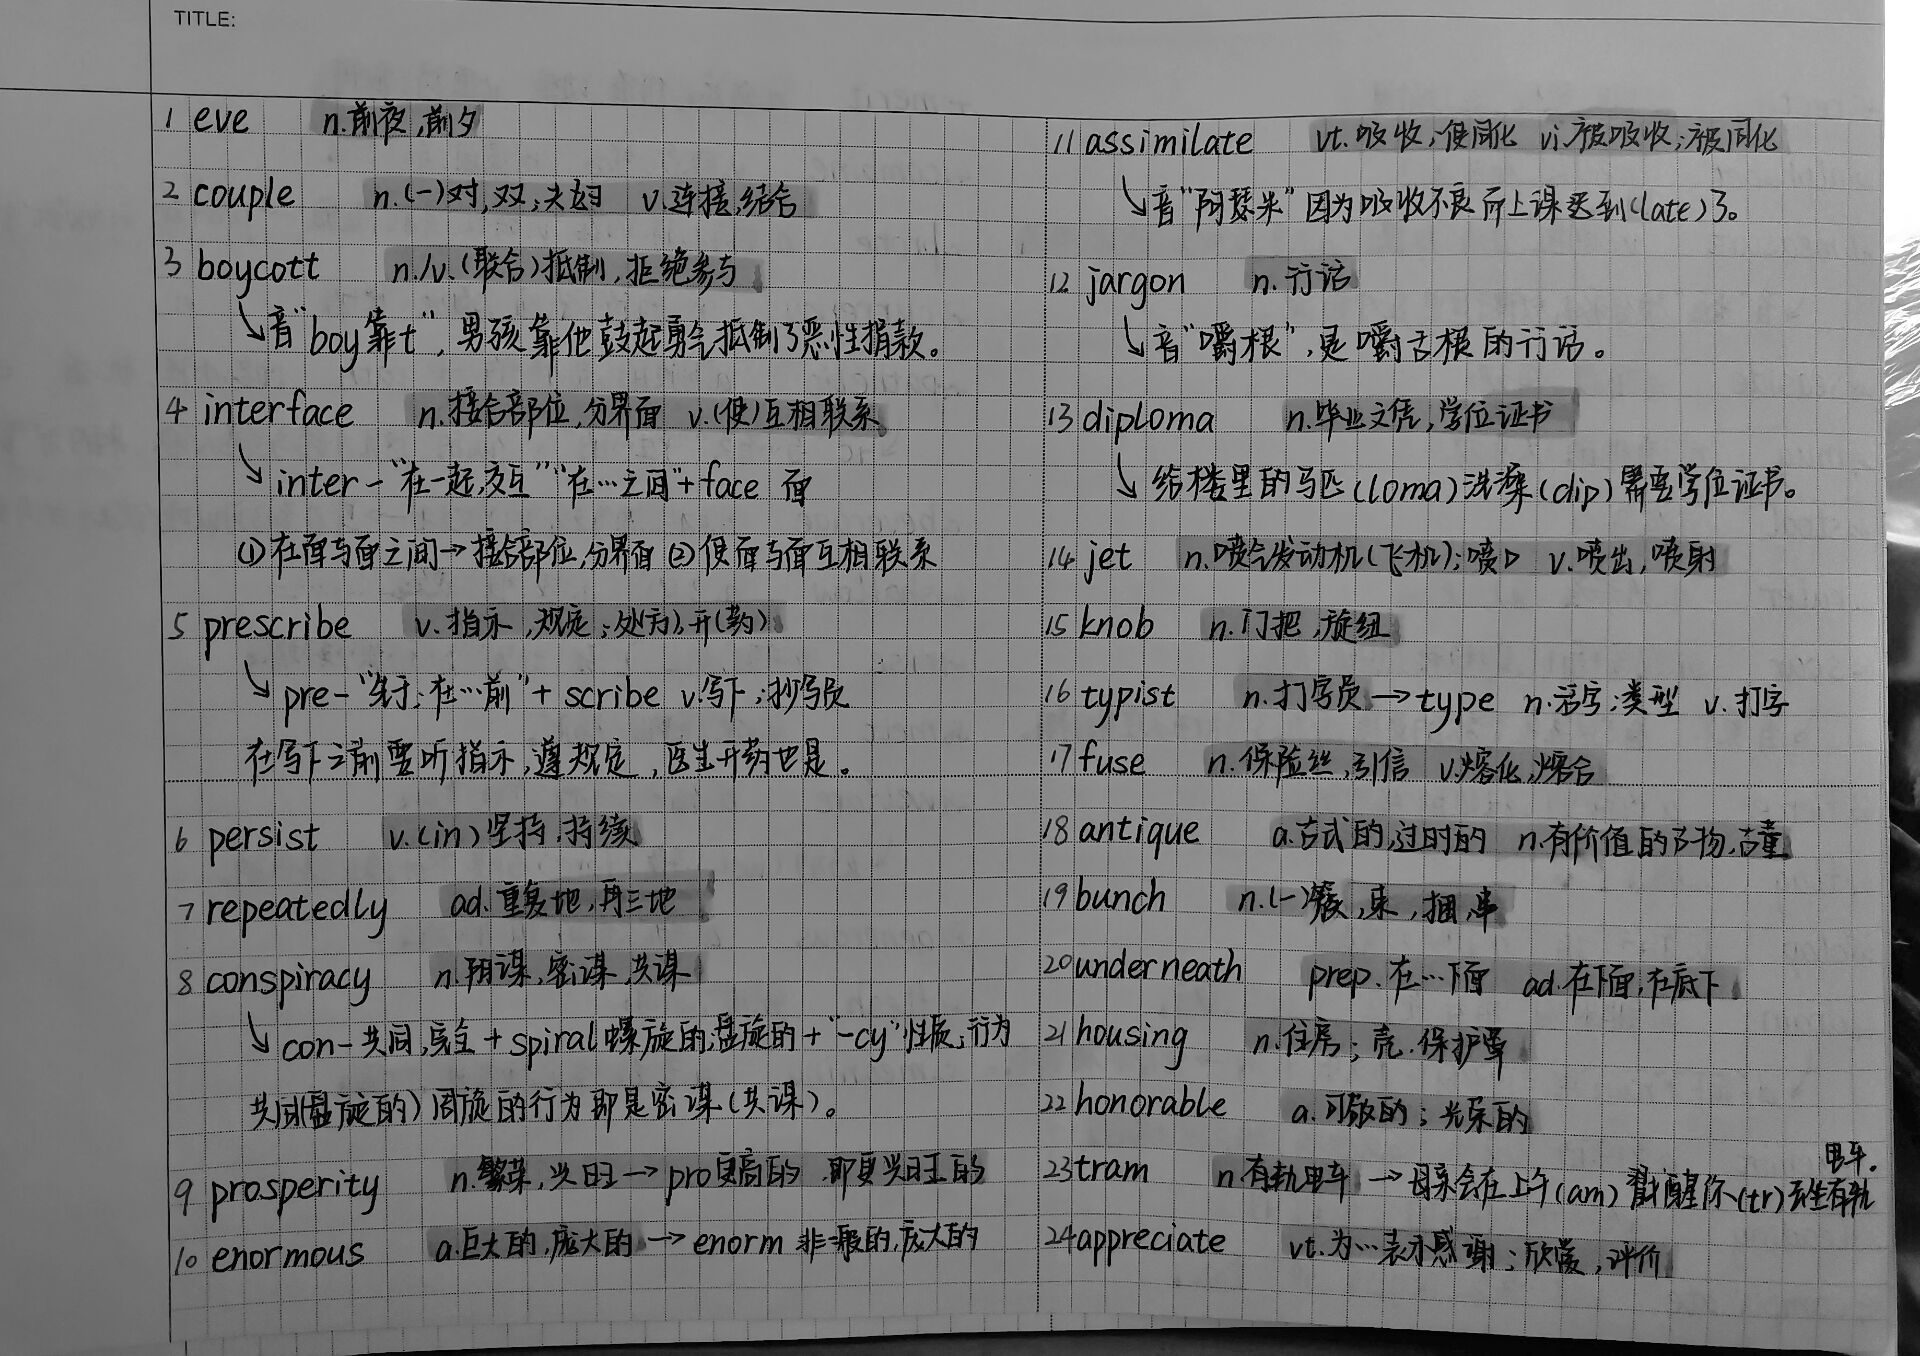 TITLE:
1 eve n.前夜,前夕
2 couple n.(一)对,双;夫妇 v.连接,结合
3 boycott n./v.(联合)抵制,拒绝参与
↘音"boy靠t",男孩靠他鼓起勇气抵制了恶性捐款。
4 interface n.接合部位,分界面 v.(使)互相联系
↘inter-"在一起,交互""在…之间"+face 面
①在面与面之间→接合部位,分界面 ②使面与面互相联系
5 prescribe v.指示,规定;处(方),开(药)
↘pre-"先于;在…前"+scribe v.写下;抄写员
在写下之前要听指示,遵规定,医生开药也是。
6 persist v.(in)坚持,持续
7 repeatedly ad.重复地,再三地
8 conspiracy n.阴谋,密谋,共谋
↘con-共同,完全+spiral螺旋的,盘旋的+"-cy"性质;行为
共同(盘旋的)周旋的行为即是密谋(共谋)。
9 prosperity n.繁荣,兴旺→pro更高的 即更兴旺的
10 enormous a.巨大的,庞大的→enorm 非一般的,庞大的
11 assimilate vt.吸收;使同化 vi.被吸收;被同化
↘音"阿瑟米"因为吸收不良而上课迟到(late)了。
12 jargon n.行话
↘音"嚼根",是嚼舌根的行话。
13 diploma n.毕业文凭,学位证书
↘给楼里的马匹(loma)洗澡(dip)需要学位证书。
14 jet n.喷气发动机(飞机);喷口 v.喷出,喷射
15 knob n.门把,旋纽
16 typist n.打字员→type n.活字;类型 v.打字
17 fuse n.保险丝,引信 v.熔化,熔合
18 antique a.古式的,过时的 n.有价值的古物,古董
19 bunch n.(一)簇,束,捆,串
20 underneath prep.在…下面 ad.在下面,在底下
21 housing n.住房;壳.保护罩
22 honorable a.可敬的;光荣的
23 tram n.有轨电车→母亲会在上午(am)戳醒你(tr)去坐有轨
电车.
24 appreciate vt.为…表示感谢;欣赏,评价